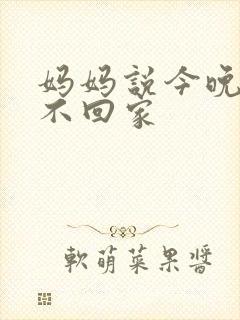 妈妈説今晚
不回家
軟萌菜果醬